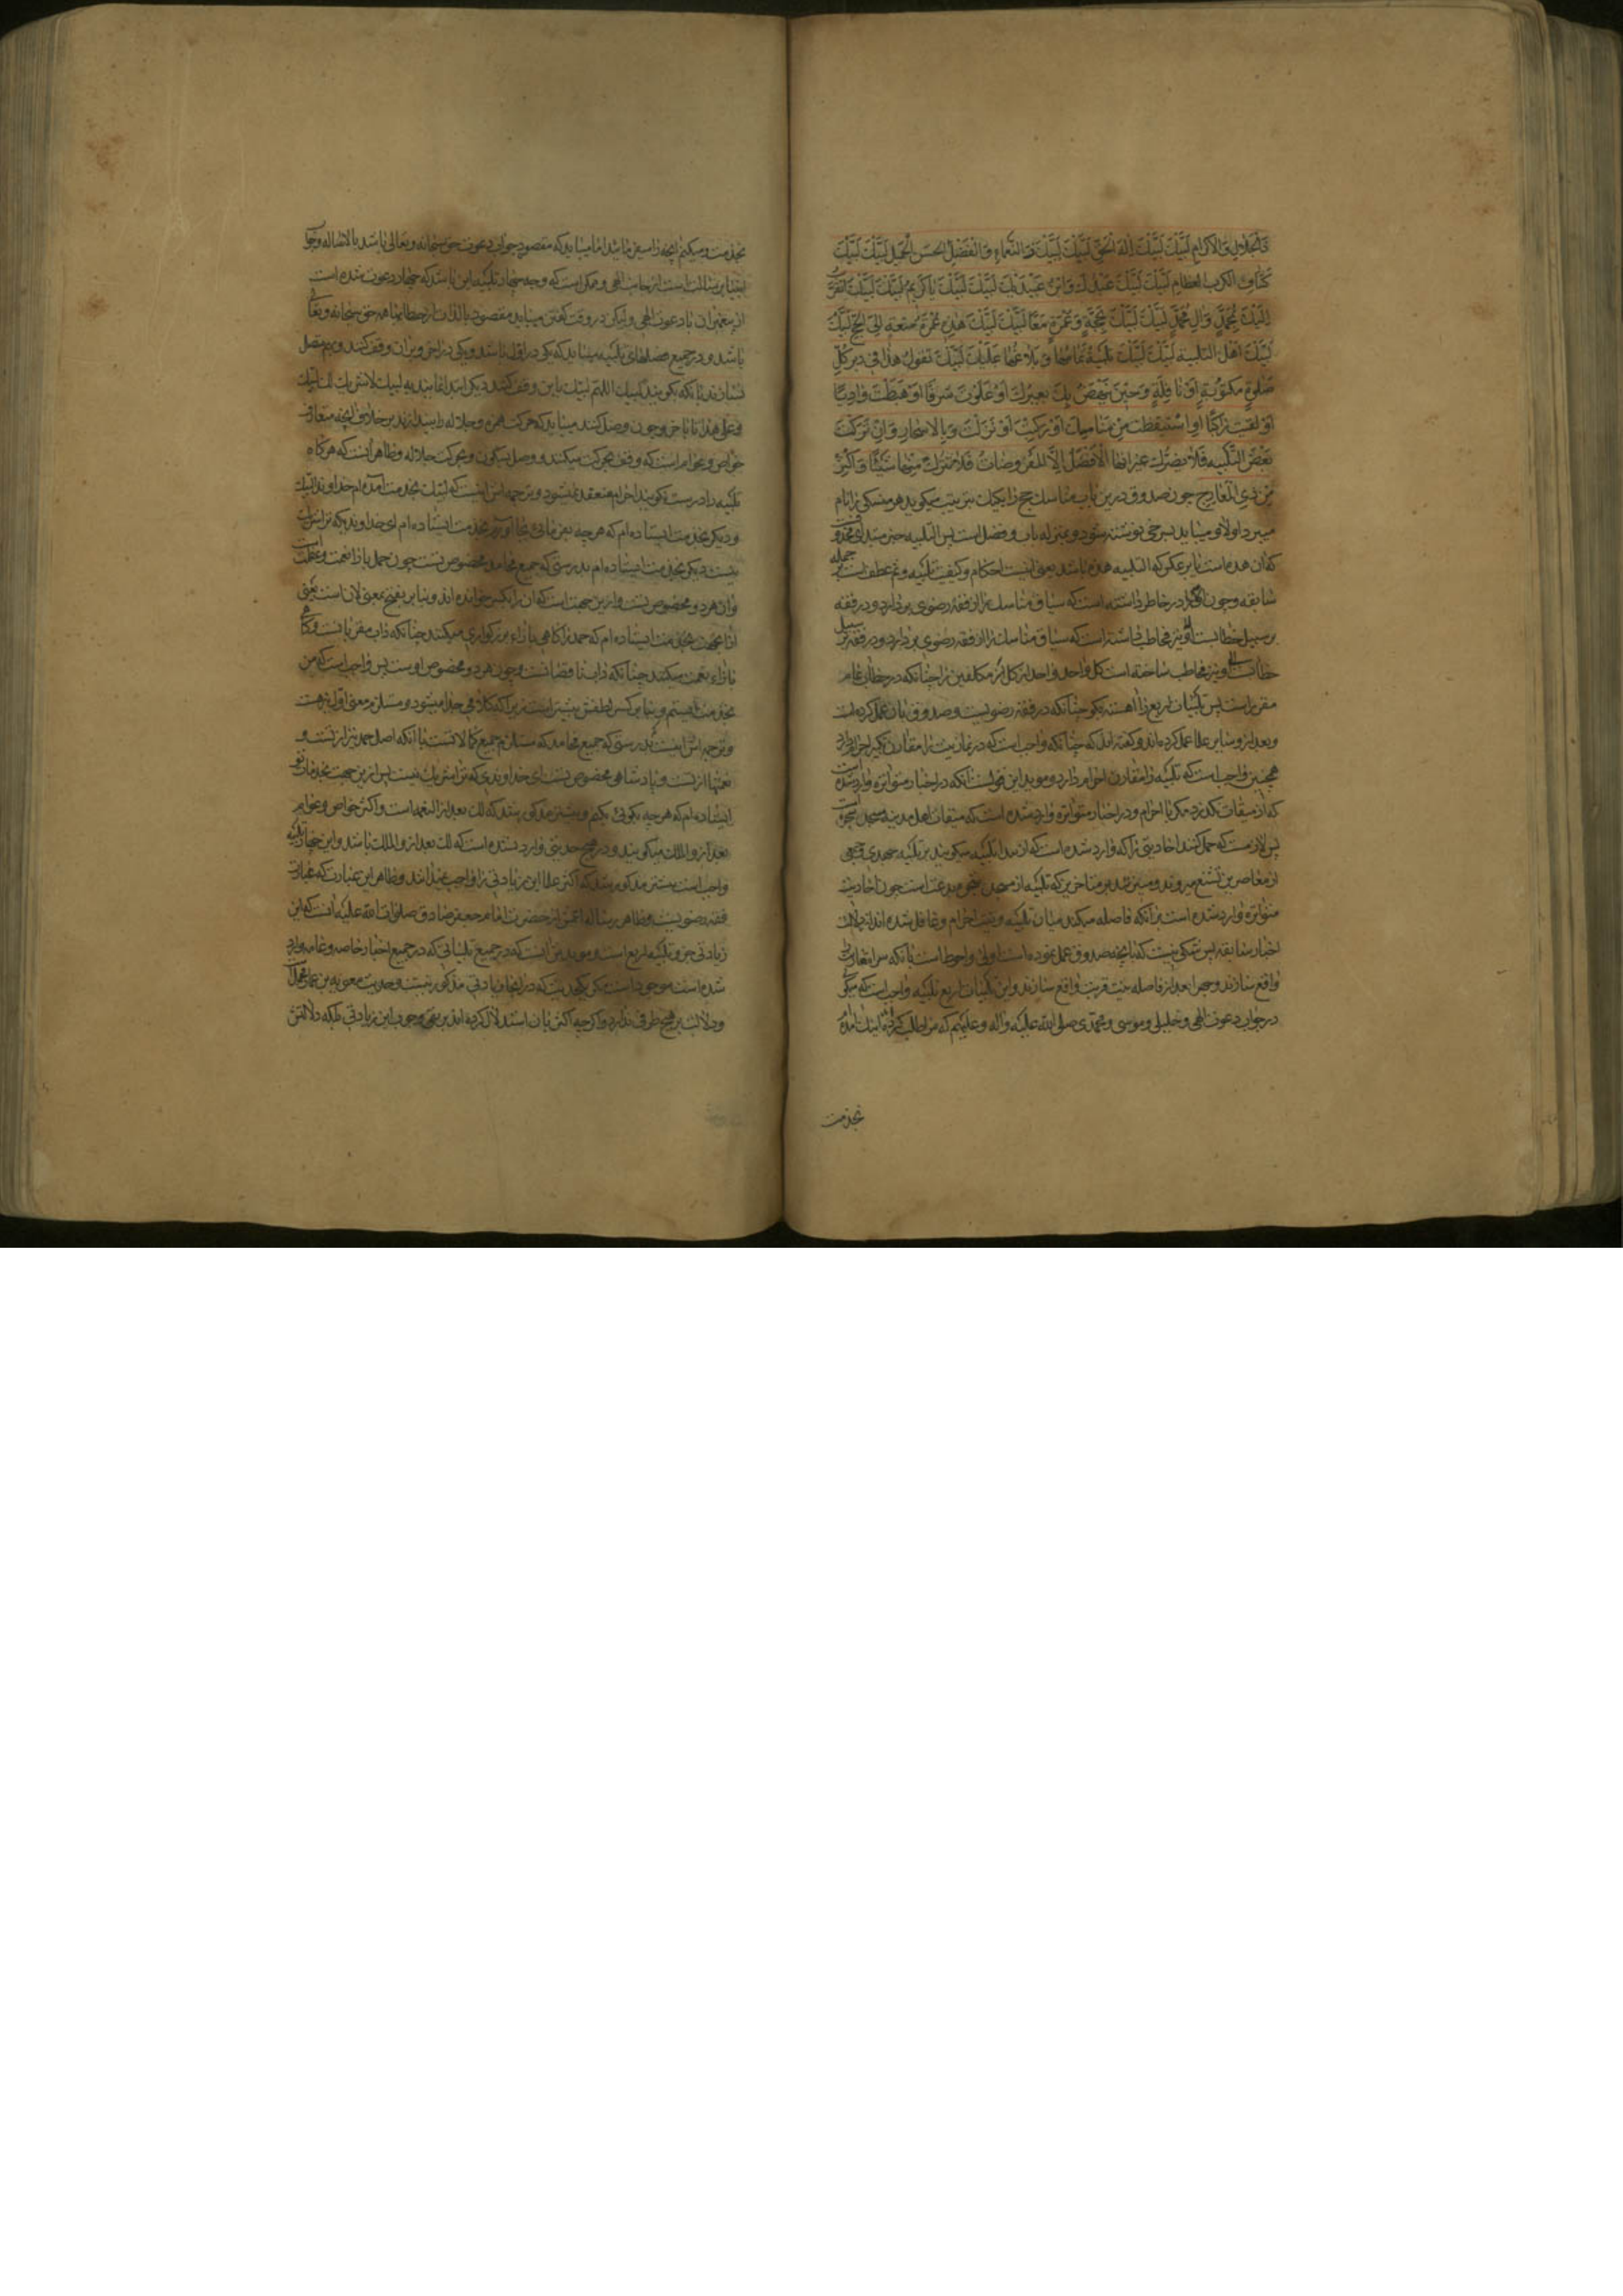 ذَا الْجَلَالِ وَالْاِكْرَامِ لَبَّيْكَ لَبَّيْكَ اِلٰهَ الْحَقِّ لَبَّيْكَ لَبَّيْكَ ذَا النَّعْمَاءِ وَالْفَضْلِ الْحَسَنِ الْجَمِيلِ لَبَّيْكَ لَبَّيْكَ
كَشَّافَ الْكُرَبِ الْعِظَامِ لَبَّيْكَ لَبَّيْكَ عَبْدُكَ وَابْنُ عَبْدَيْكَ لَبَّيْكَ لَبَّيْكَ يَا كَرِيمُ لَبَّيْكَ لَبَّيْكَ اَتَقَرَّبُ
اِلَيْكَ بِمُحَمَّدٍ وَآلِ مُحَمَّدٍ لَبَّيْكَ لَبَّيْكَ بِحَجَّةٍ وَعُمْرَةٍ مَعًا لَبَّيْكَ لَبَّيْكَ هٰذِهِ عُمْرَةُ مُتْعَةٍ اِلَى الْحَجِّ لَبَّيْكَ
لَبَّيْكَ اَهْلَ التَّلْبِيَةِ لَبَّيْكَ لَبَّيْكَ تَلْبِيَةً تَمَامُهَا وَبَلَاغُهَا عَلَيْكَ لَبَّيْكَ تَقُولُ هٰذَا فِي دُبُرِ كُلِّ
صَلٰوةٍ مَكْتُوبَةٍ اَوْ نَافِلَةٍ وَحِينَ يَنْهَضُ بِكَ بَعِيرُكَ اَوْ عَلَوْتَ شَرَفًا اَوْ هَبَطْتَ وَادِيًا
اَوْ لَقِيتَ رَاكِبًا اَوِ اسْتَيْقَظْتَ مِنْ مَنَامِكَ اَوْ رَكِبْتَ اَوْ نَزَلْتَ وَبِالْاَسْحَارِ وَاِنْ تَرَكْتَ
بَعْضَ التَّلْبِيَةِ فَلَا يَضُرُّكَ غَيْرَ اَنَّهَا الْاَفْضَلُ اِلَّا الْمَفْرُوضَاتُ فَلَا تَتْرُكْ مِنْهَا شَيْئًا وَاَكْثِرْ
مِنْ ذِي الْمَعَارِجِ چون صدوق درین باب مناسک حج را یکیک بترتیب میگوید هر منسکی را نام
میبرد اولا و میباید بسرخی نوشته شود و بمنزله باب و فصل است پس التلبیه خبر مبتدای محذوفست
که آن هذه است یا برعکس که التلبیه هذه باشد یعنی اینست احکام و کیفیت تلبیه و ثم عطف است بر جمله
سابقه و چون در خاطر داشته است که سیاق مناسک را از فقه رضوی بردارد و در فقه
بر سبیل خطابست مخاطب داشته است که سیاق مناسک را از فقه رضوی بردارد و در فقه بر سبیل
خطابست او نیز مخاطب ساخته است کل واحد واحد از مکلفین را چنانکه در خطاب عام
مقرر است پس تلبیات اربع را آهسته بگو چنانکه در فقه رضویست و صدوق بان عمل کرده است
و بعد ازو سایر علما عمل کرده‌اند و گفته‌اند که چنانکه واجب است که در نماز نیت را مقارن تکبیر احرام دارد
همچنین واجب است که تلبیه را مقارن احرام دارد و موید این قولست آنکه در اخبار متواتره وارد شده است
که از میقات نگذرد مگر با احرام و در اخبار متواتره وارد شده است که میقات اهل مدینه مسجد شجره است
پس لازمست که حمل کنند احادیثی را که وارد شده است که از بیدا تلبیه میگویند بر تلبیه جهری و بعضی
از معاصرین تشنع میزدند بر متاخرین که تلبیه از مسجد بدعت است چون احادیث
متواتره وارد شده است برآنکه فاصله میکند میان تلبیه و نیت احرام و غافل شده‌اند از دلالت
اخبار سابقه پس شکی نیست که آنچه صدوق عمل نموده است اولی و احوط است بآنکه سرا مقارن
واقع سازند و جهرا بعد از فاصله نیت قربت واقع سازند و این تلبیات اربع تلبیه واجب است که میگوی
در جواب دعوت الهی و خلیلی و موسی و محمدی صلی الله علیه و آله و علیهم که مرا طلب کردی اینک آمدم
بخدمت
بخدمت و میکنم آنچه را بفرما باشد اما میباید که مقصود جواب دعوت حق سبحانه و تعالی باشد بالاصاله و جواب
انبیا برسالت است از جانب الهی و ممکن است که وجه چهار تلبیه این باشد که چهار دعوت شده است
از پیغمبران با دعوت الهی ولیکن در وقت گفتن میباید مقصود بالذات از خطابها همه حق سبحانه و تعالی
باشد و در جمیع فصلهای تلبیه میباید که یکی در اول باشد و یکی در آخر و بر آن وقف کنند و بهم متصل
نسازند بآنکه بگویند لبیک اللهم لبیک باین وقف کنند دیگر ابتدا نمایند به لبیک لا شریک لک لبیک
و علی هذا تا باخر و چون وصل کنند میباید که حرکت همزه و جلاله را بیندازند بر خلاف آنچه متعارف
خواص و عوام است که وقف بحرکت میکنند و وصل بسکون و بحرکت جلاله و ظاهر آنست که هرگاه
تلبیه را درست نگویند احرام منعقد نمیشود و ترجمه اش اینست که لبیک بخدمت آمده‌ام خداوندا لبیک
و دیگر بخدمت ایستاده‌ام که هر چه بفرمائی بجا آورم بخدمت ایستاده‌ام ای خداوندیکه ترا شریک
نیست دیگر بخدمت ایستاده‌ام بدرستی که جمیع محامد مخصوص تست چون حمد بازاء نعمت و عظمت است
و آن هر دو مخصوص تست و ازین جهت است که ان را بکسر خوانده‌اند و بنا بر بفتح بمعنی لان است یعنی
ازین جهت بخدمت ایستاده‌ام که حمد را گاهی بازاء بزرگواری میکنند چنانکه داب مقربانست و گاهی
بازاء نعمت میکنند چنانکه داب ناقصانست و چون هر دو مخصوص اوست پس واجب است که من
بخدمت بایستم و بنا بر کسر لطفش بیشتر است زیرا که کلامی جدا میشود و مستلزم معنی اول نیز هست
و ترجمه اش اینست بدرستی که جمیع محامد که مستلزم جمیع کمالاتست با آنکه اصل حمد نیز از تست و
نعمتها از تست و پادشاهی مخصوص تست ای خداوندی که ترا شریک نیست پس ازین جهت بخدمات تو
ایستاده‌ام که هر چه بگوئی بکنم و بیشتر مذکور شد که لک بعد از النعمه است و اکثر خواص و عوام
بعد از والملک میگویند و در هیچ حدیثی وارد نشده است که لک بعد از والملک باشد و این چهار تلبیه
واجب است بیشتر مذکور شد که اکثر علما این زیادتی را واجب نمیدانند و ظاهر این عبارت که عبارت
فقه رضویست و ظاهر رساله اعمش از حضرت امام جعفر صادق صلوات الله علیه آنست که این
زیادتی جزو تلبیه اربع است و موید این آنست که در جمیع تلبیاتی که در جمیع اخبار خاصه و عامه وارد
شده است موجود است مگر یکحدیث که در آنجا زیادتی مذکور نیست و حدیث معویه بن عمار مجملا
و دلالت بر هیچ طرف ندارد و اگر چه اکثر بان استدلال کرده‌اند بر نفی وجوب این زیادتی بلکه دلالتش